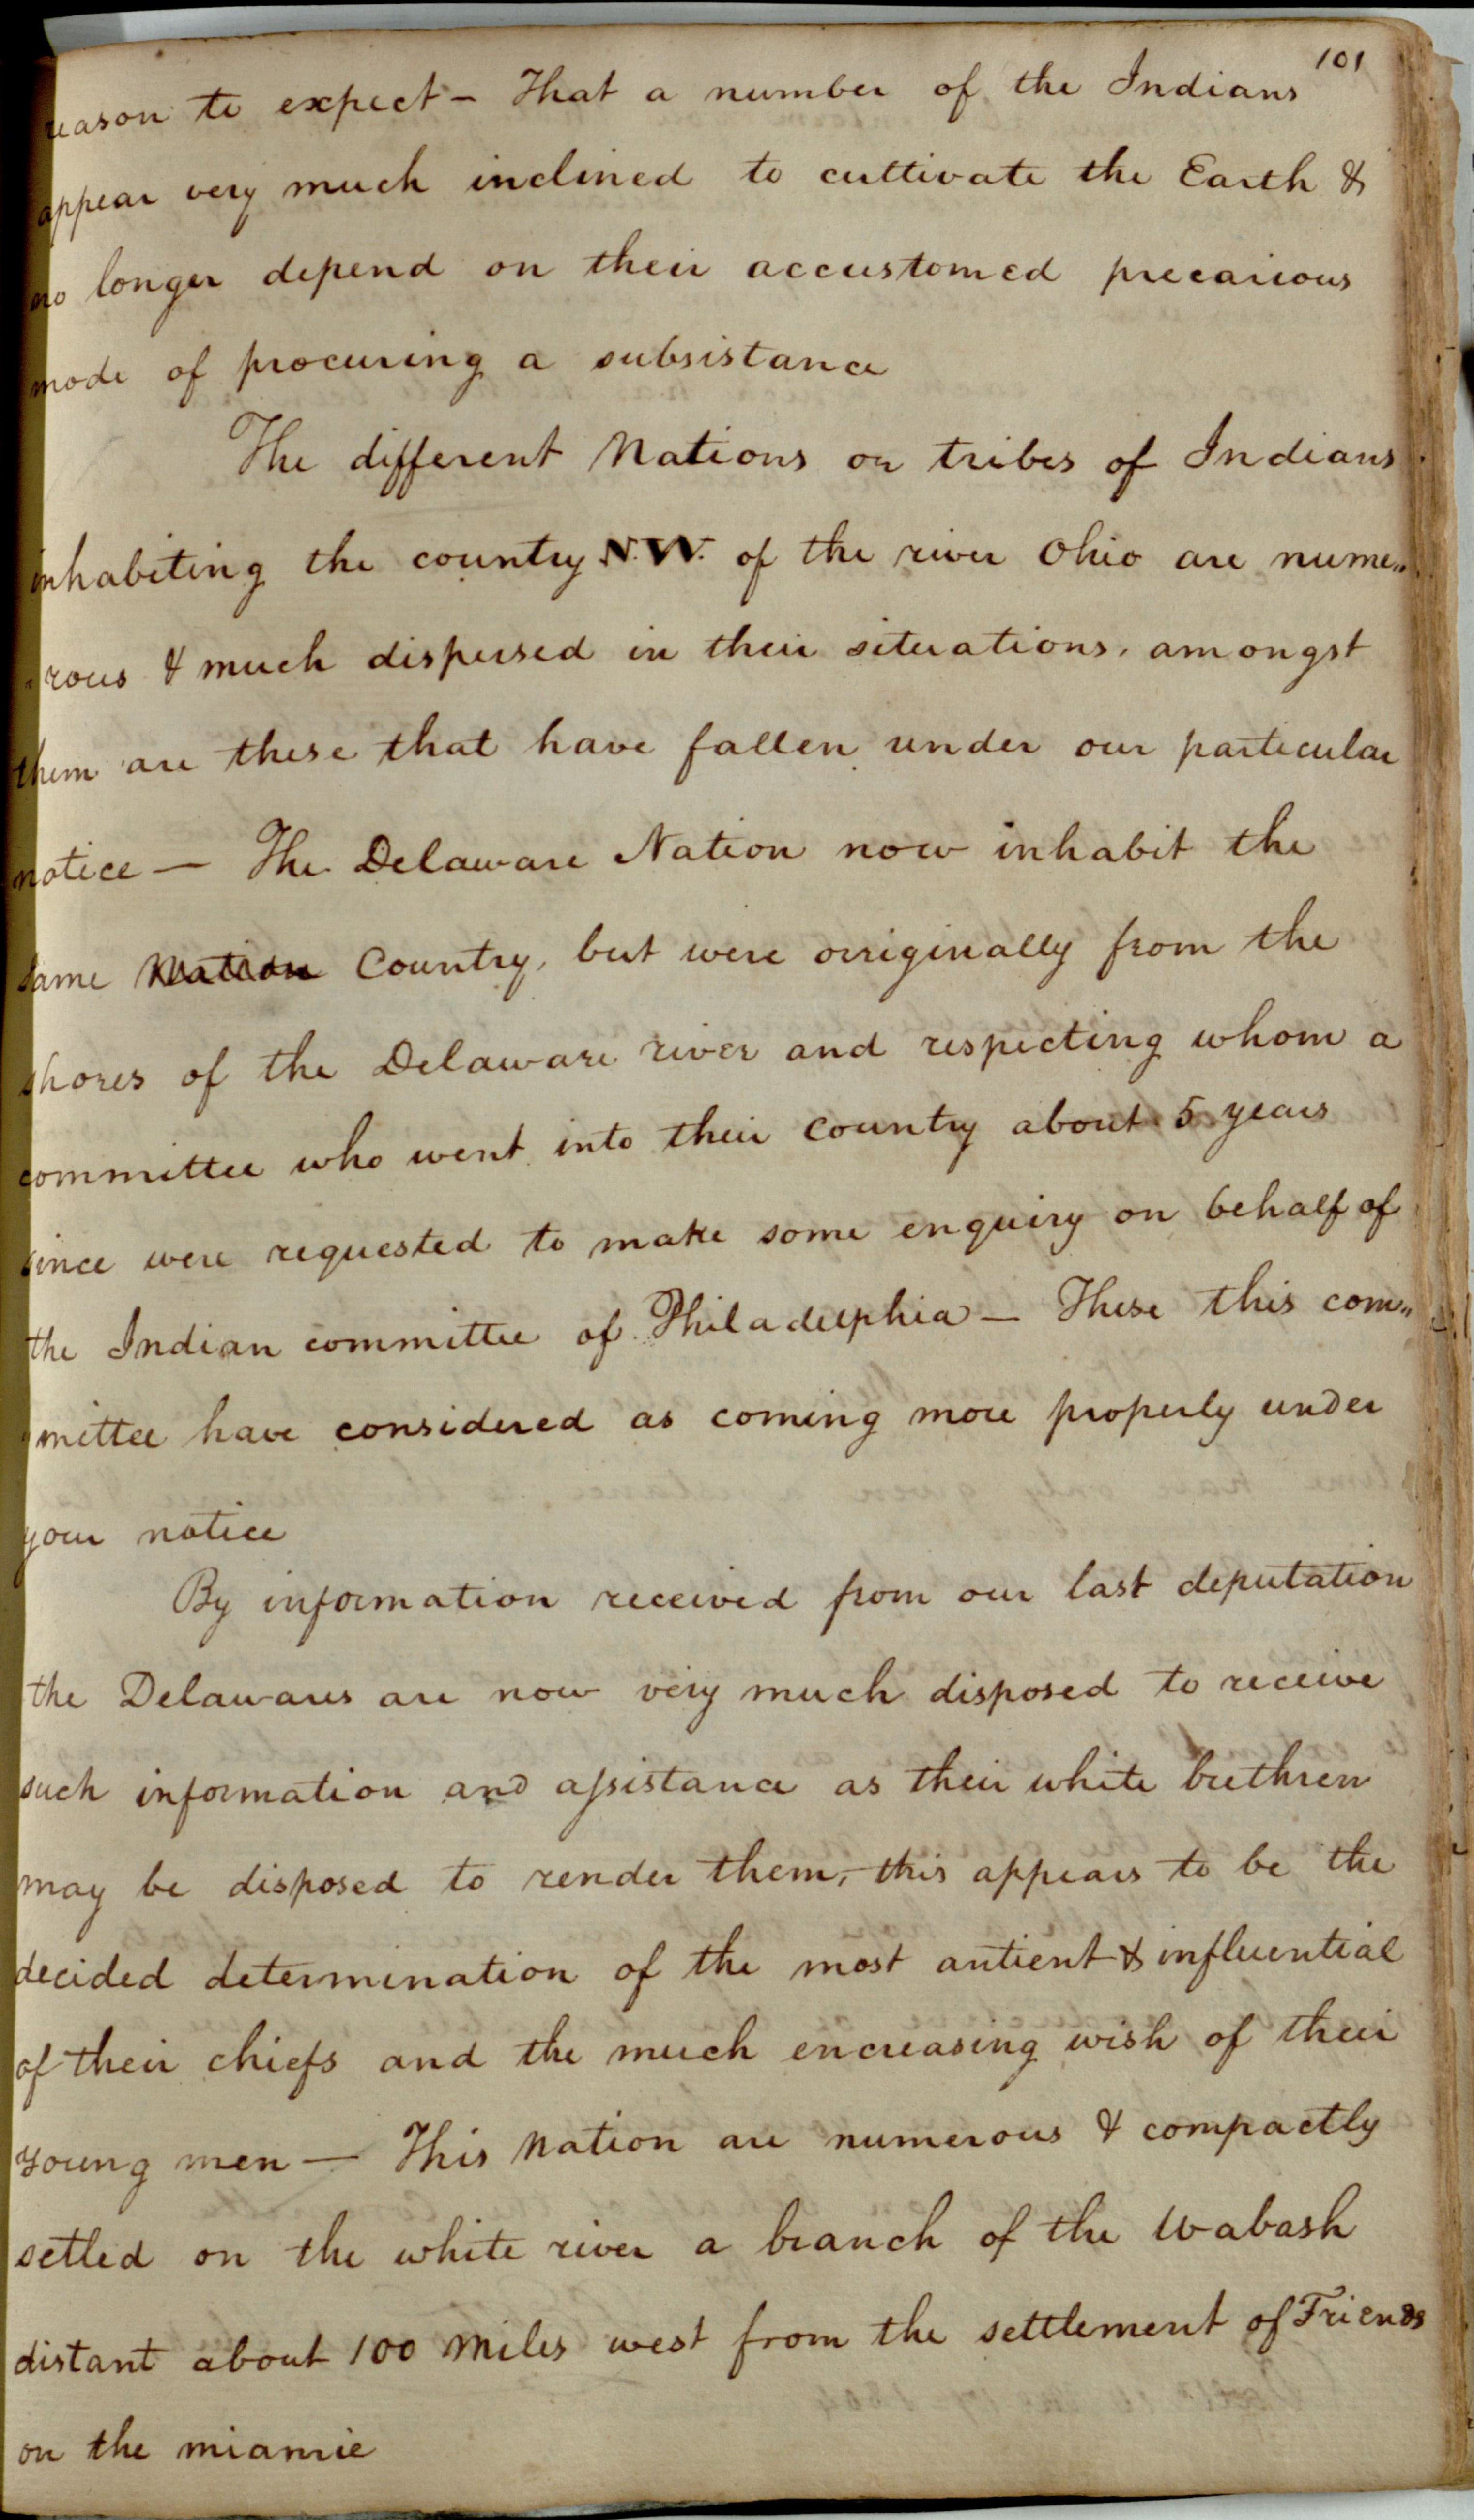 101
reason to expect - That a number of the Indians
appear very much inclined to cultivate the Earth &
no longer depend on their accustomed precarious
mode of procuring a subsistance
The different Nations or tribes of Indians
inhabiting the country N.W. of the river Ohio are nume„
„rous & much dispersed in their situations, amongst
them are these that have fallen under our particular
notice — The Delaware Nation now inhabit the
same Nation Country, but were orriginally from the
shores of the Delaware river and respecting whom a
committee who went into their Country about 5 years
since were requested to make some enquiry on behalf of
the Indian committee of Philadelphia — These this com„
„mittee have considered as coming more properly under
your notice
By information received from our last deputation
the Delawares are now very much disposed to receive
such information and assistance as their white brethren
may be disposed to render them, - this appears to be the
decided determination of the most antient & influential
of their chiefs and the much encreasing wish of their
young men — This Nation are numerous & compactly
setled on the white river a branch of the Wabash
distant about 100 Miles west from the settlement of Friends
on the miamie